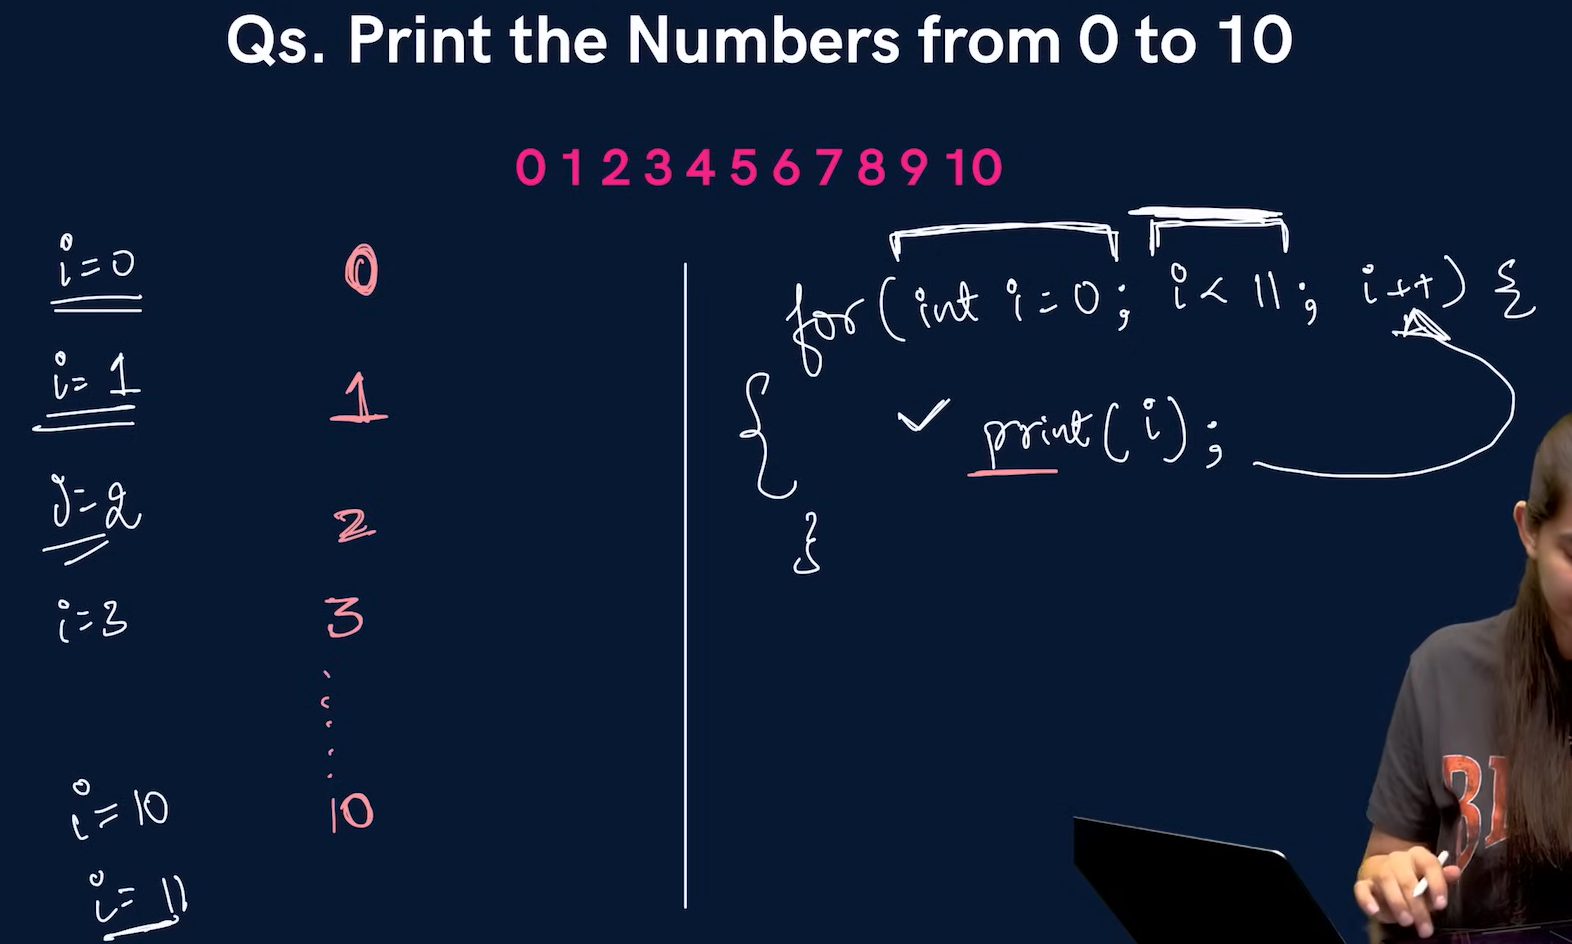 Qs. Print the Numbers from 0 to 10
0 1 2 3 4 5 6 7 8 9 10
i=0 0
i=1 1
i=2 2
i=3 3
i=10 10
i=11
for(int i=0; i<11; i++) {
print(i);
}